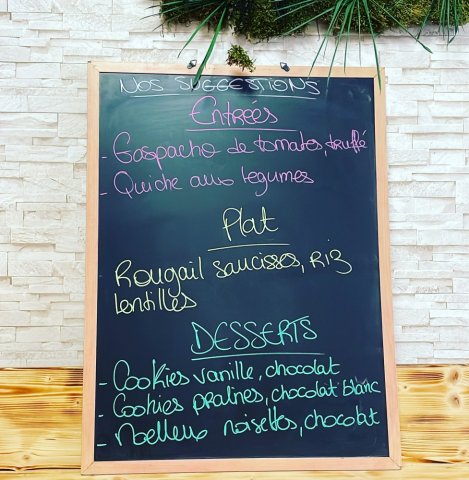 NOS SUGGESTIONS
Entrées
- Gaspacho de tomates, truffé
- Quiche aux legumes
Plat
Rougail saucisses, Riz
lentilles
DESSERTS
- Cookies vanille, chocolat
- Cookies pralines, chocolat blanc
- Moelleux noisettes, chocolat